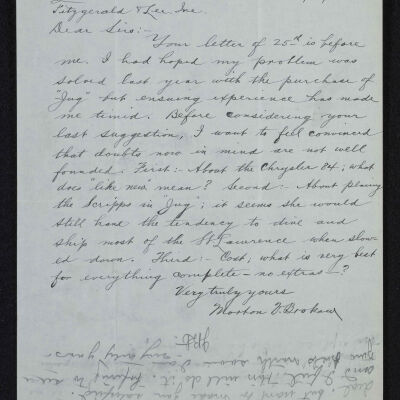 Fitzgerald & Lee Inc.
Dear Sirs:-
Your letter of 25th is before
me. I had hoped my problem was
solved last year with the purchase of
"Jug" but ensuing experience has made
me timid. Before considering your
last suggestion, I want to feel convinced
that doubts now in mind are not well
founded. First:- About the Chrysler 84; what
does "like new" mean? Second:- About placing
the Scripps in "Jug"; it seems she would
still have the tendency to dive and
ship most of the St. Lawrence when slow-
ed down. Third:- Cost; what is very best
for everything complete - no extras - ?
Very truly yours
Morton V. Brokaw